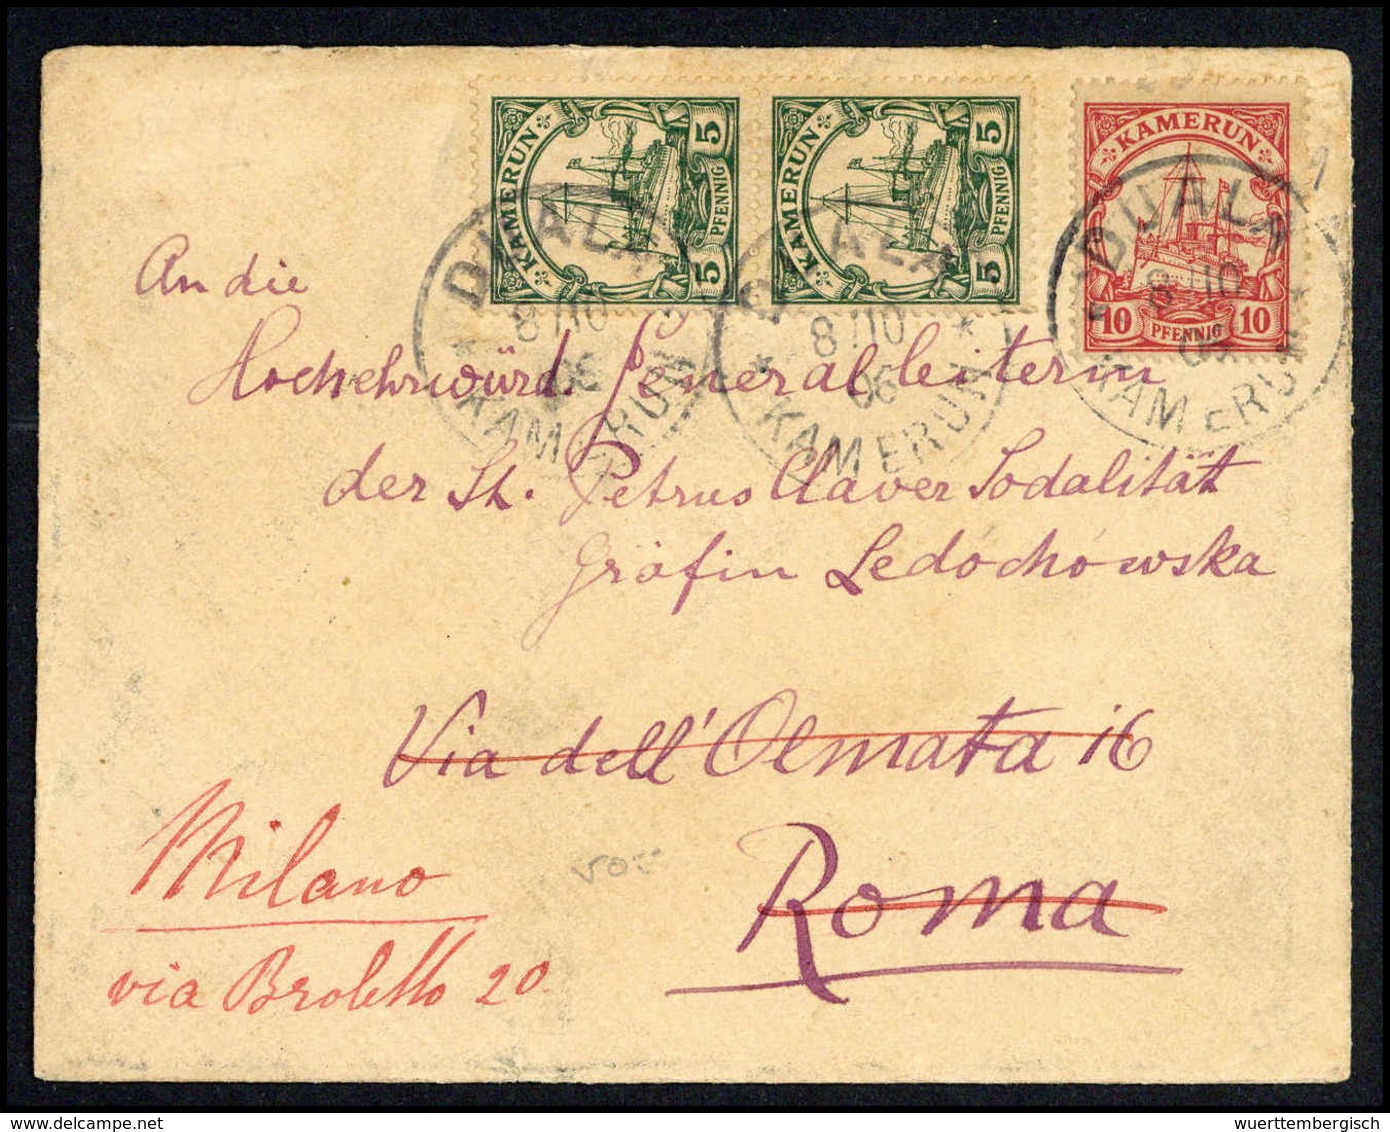 KAMERUN
5
PFENNIG
5
KAMERUN
5
PFENNIG
5
KAMERUN
10 PFENNIG 10
DUALA
8/10
06
KAMERUN
DUALA
8/10
06
KAMERUN
DUALA
8/10
06
KAMERUN
An die
Hochehrwürd. Generalleiterin
der St. Petrus Claver Sodalität
Gräfin Ledóchówska
Via dell' Olmata 16
Roma
Milano
via Broletto 20.
wuerttembergisch